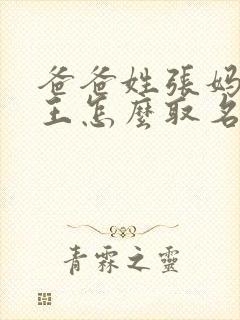 爸爸姓張媽
王怎麼取名
青霖之靈